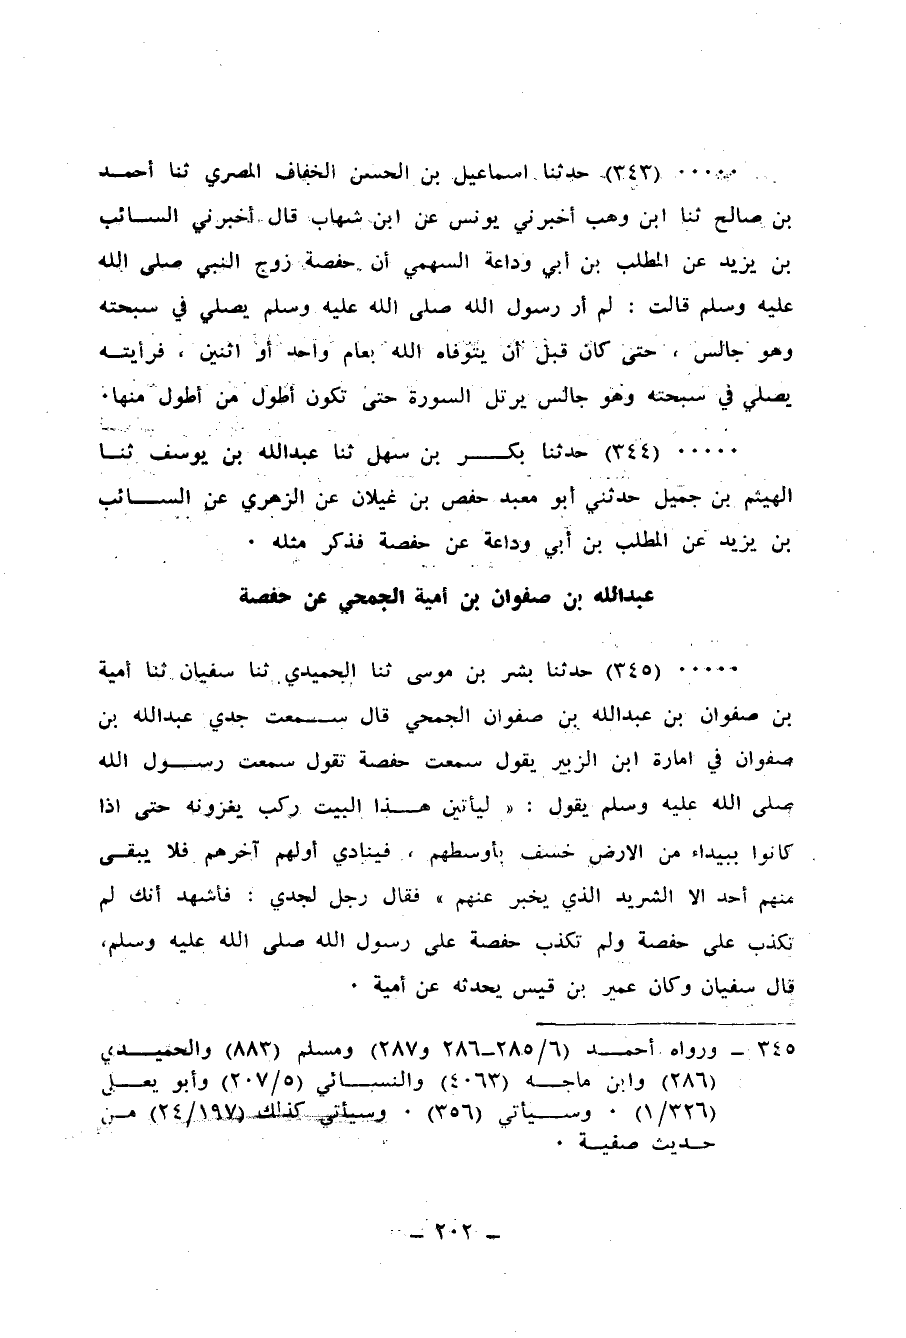 ..... (٣٤٣) حدثنا اسماعيل بن الحسن الخفاف المصري ثنا أحمد
بن صالح ثنا ابن وهب أخبرني يونس عن ابن شهاب قال أخبرني السائب
بن يزيد عن المطلب بن أبي وداعة السهمي أن حفصة زوج النبي صلى الله
عليه وسلم قالت : لم أر رسول الله صلى الله عليه وسلم يصلي في سبحته
وهو جالس ، حتى كان قبل أن يتوفاه الله بعام واحد أو اثنين ، فرأيته
يصلي في سبحته وهو جالس يرتل السورة حتى تكون أطول من أطول منها.
..... (٣٤٤) حدثنا بكر بن سهل ثنا عبدالله بن يوسف ثنا
الهيثم بن جميل حدثني أبو معبد حفص بن غيلان عن الزهري عن السائب
بن يزيد عن المطلب بن أبي وداعة عن حفصة فذكر مثله .
عبدالله بن صفوان بن أمية الجمحي عن حفصة
..... (٣٤٥) حدثنا بشر بن موسى ثنا الحميدي ثنا سفيان ثنا أمية
بن صفوان بن عبدالله بن صفوان الجمحي قال سمعت جدي عبدالله بن
صفوان في امارة ابن الزبير يقول سمعت حفصة تقول سمعت رسول الله
صلى الله عليه وسلم يقول : « ليأتين هذا البيت ركب يغزونه حتى اذا
كانوا ببيداء من الارض خسف بأوسطهم ، فينادي أولهم آخرهم فلا يبقى
منهم أحد الا الشريد الذي يخبر عنهم » فقال رجل لجدي : فأشهد أنك لم
تكذب على حفصة ولم تكذب حفصة على رسول الله صلى الله عليه وسلم،
قال سفيان وكان عمير بن قيس يحدثه عن أمية .
٣٤٥ ــ ورواه أحمد (٦/٢٨٥ــ٢٨٦ و٢٨٧) ومسلم (٨٨٣) والحميدي
(٢٨٦) وابن ماجه (٤٠٦٣) والنسائي (٥/٢٠٧) وأبو يعلى
(١/٣٢٦) . وسيأتي (٣٥٦) . وسيأتي كذلك (٢٤/١٩٧) من
حديث صفية .
ــ ٢٠٢ ــ